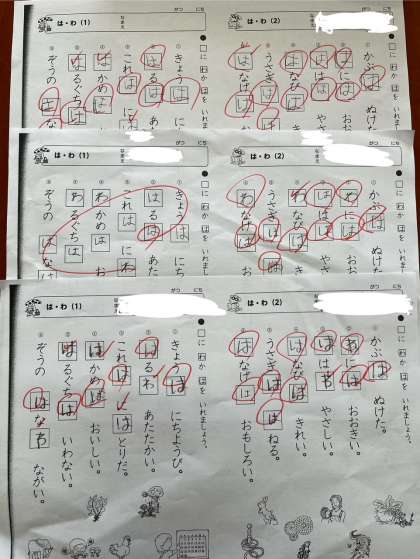 がつ にち
は・わ (1)
なまえ
□に わ か は を いれま
きょうは
はるは あた
これは に
はかめは お
はるぐちは
ぞうの はな
がつ にち
は・わ (2)
□に わ か は を いれま
かぶは ぬけた
には おお
はは やさ
なびは
うさぎは
はなげ
がつ にち
は・わ (1)
なまえ
□に わ か は を いれまし
きょうは にち
はるは あたた
これは にわ
わかめは お
わるぐちは
ぞうの はなは
がつ にち
は・わ (2)
□に わ か は を いれまし
かぶは ぬけ
わには おお
はははやさ
わなびは き
うさぎは は
わなげは お
がつ にち
は・わ (1)
□に わ か は を いれましょう。
きょうは にちようび。
はるわ あたたかい。
これは にはとりだ。
はかめは おいしい。
はるぐちは いわない。
ぞうの はなわ ながい。
がつ にち
は・わ (2)
□に わ か は を いれましょう。
かぶは ぬけた。
わには おおきい。
ははわ やさしい。
はなびは きれい。
うさぎは はねる。
はなげは おもしろい。